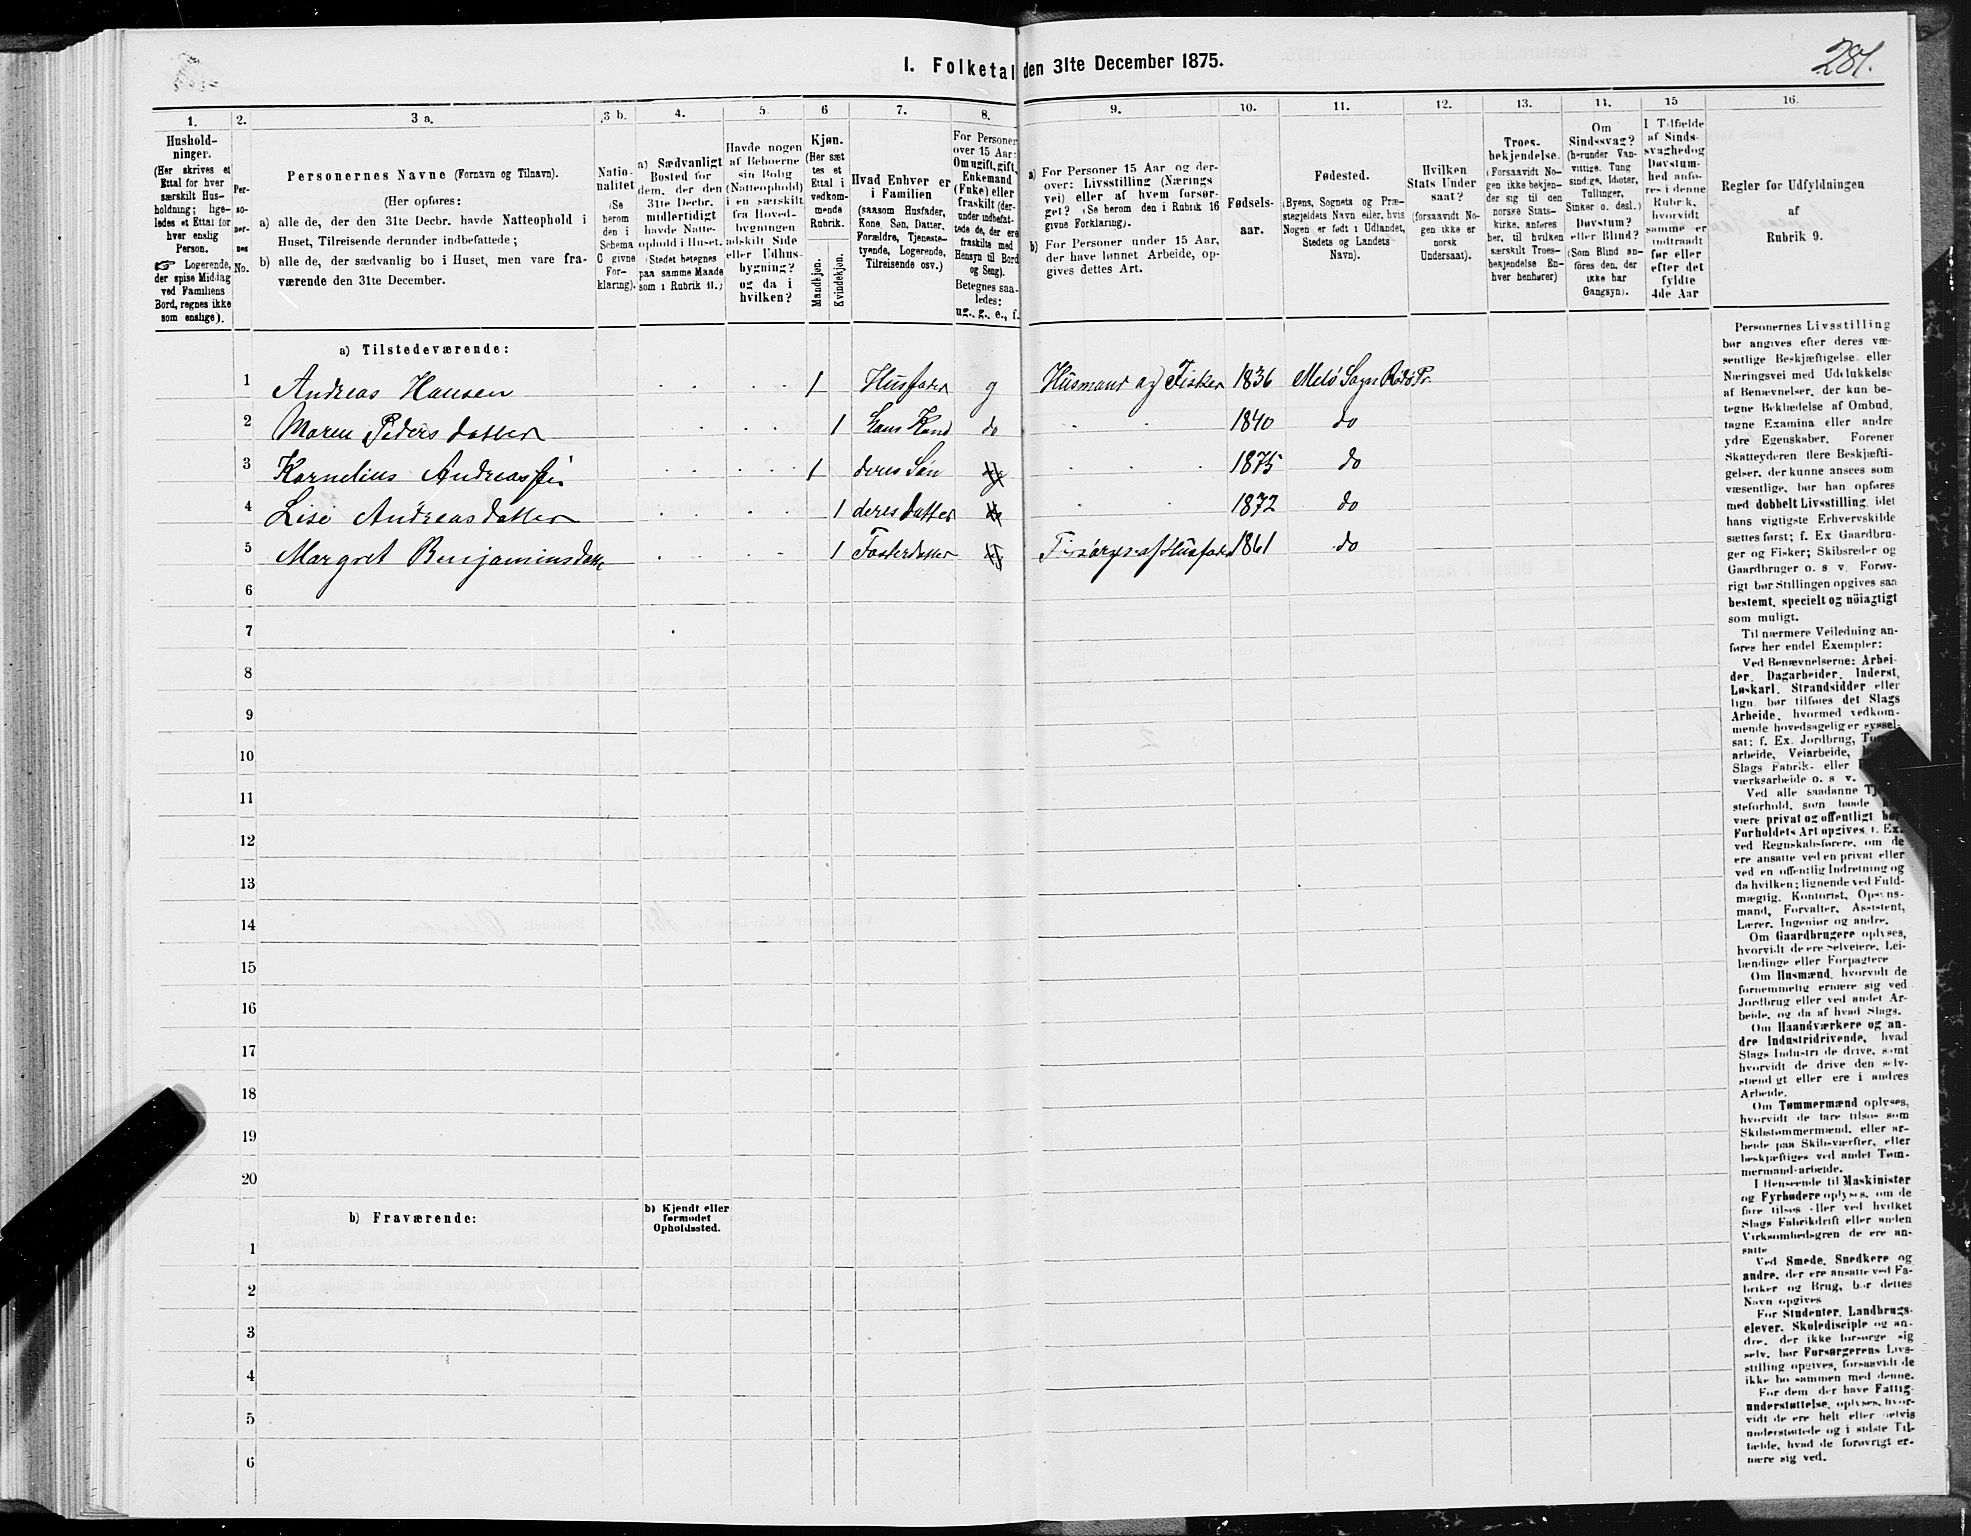 281.
I. Folketal den 31te December 1875.
1. 2. 3 a. 3 b. 4. 5. 6 7. 8. 9. 10. 11. 12. 13. 14. 15 16.
Hushold-
ninger.
(Her skrives et
Ettal for hver
særskilt Hus-
holdning; lige-
ledes et Ettal for
hver enslig
Person.
☞ Logerende,
der spise Middag
ved Familiens
Bord, regnes ikke
som enslige).
Per-
so-
ner-
nes
No.
Personernes Navne (Fornavn og Tilnavn).
(Her opføres:
a) alle de, der den 31te Decbr. havde Natteophold i
Huset, Tilreisende derunder indbefattede;
b) alle de, der sædvanlig bo i Huset, men vare fra-
værende den 31te December.
Natio-
nalitet
(Se
herom
den i
Schema
C givne
For-
klaring).
a) Sædvanligt
Bosted for
dem, der den
31te Decbr.
midlertidigt
havde Natte-
ophold i Huset.
(Stedet betegnes
paa samme Maade
som i Rubrik 11.)
Havde nogen
af Beboerne
sin Bolig
(Natteophold)
i en særskilt
fra Hoved-
bygningen
adskilt Side
eller Udhus-
bygning?
og da i
hvilken?
Kjøn.
(Her sæt
tes et
Ettal i
vedkom-
mende
Rubrik.
Mandkjøn.
Kvindekjøn.
Hvad Enhver er
i Familien
(saasom Husfader,
Kone, Søn, Datter,
Forældre, Tjeneste-
tyende, Logerende,
Tilreisende osv.)
For Personer
over 15 Aar:
Om ugift, gift,
Enkemand
(Enke) eller
fraskilt (der-
under indbefat-
tede de, der ere
fraskilte med
Hensyn til Bord
og Seng).
Betegnes saa-
ledes:
ug., g., e., f.
a) For Personer 15 Aar og der-
over: Livsstilling (Nærings
vei) eller af hvem forsør-
get? (Se herom den i Rubrik 16
givne Forklaring).
b) For Personer under 15 Aar,
der have lønnet Arbeide, op-
gives dettes Art.
Fødsels-
aar.
Fødested.
(Byens, Sognets og Præ-
stegjeldets Navn eller, hvis
Nogen er født i Udlandet,
Stedets og Landets
Navn).
Hvilken
Stats Under
saat?
(forsaavidt No-
gen ikke er
norsk
Undersaat).
Troes-
bekjendelse.
(Forsaavidt No-
gen ikke bekjen-
der sig til den
norske Stats-
kirke, anføres
her, til hvilken
særskilt Troes-
bekjendelse En-
hver henhører)
Om
Sindssvag?
(herunder Van-
vittige, Tung
sindige, Idioter,
Tullinger,
Sinker o. desl.)
Døvstum?
eller Blind?
(Som Blind an-
føres den, der
ikke har
Gangsyn).
I Tilfælde
af Sinds-
svaghed og
Døvstum-
hed anfø-
res i denne
Rubrik,
hvorvidt
samme er
indtraadt
før eller
efter det
fyldte
4de Aar
Regler for Udfyldningen
af
Rubrik 9.
a) Tilstedeværende:
1 Andreas Hansen 1 Husfader g Husmand og Fisker 1836 Melö Sogn Rödö Pr.
2 Maren Peders datter 1 Hans Kone do 1840 do
3 Kornelius Andreas 1 deres Søn 1875 do
4 Lise Andreasdatter 1 deres datter 1872 do
5 Margret Benjamins 1 Fosterdatter af Husfader 1861 do
6
7
8
9
10
11
12
13
14
15
16
17
18
19
20
b) Fraværende:
b) Kjendt eller
formodet
Opholdssted.
1
2
3
4
5
6
Personernes Livsstilling
bør angives efter deres væ-
sentlige Beskjæftigelse eller
Næringsvei med Udelukkelse
af Benævnelser, der kun be-
tegne Beklædelse af Ombud,
tagne Examina eller andre
ydre Egenskaber. Forener
Skatteyderen flere Beskjæfti-
gelser, der kunne ansees som
væsentlige, bør han opføres
med dobbelt Livsstilling, idet
hans vigtigste Erhvervskilde
sættes først; f. Ex Gaardbru-
ger og Fisker; Skibsreder og
Gaardbruger o. s v. Forøv-
rigt bør Stillingen opgives saa
bestemt, specielt og nöiagtigt
som muligt.
Til nærmere Veiledning an-
føres her endel Exempler:
Ved Benævnelserne: Arbei-
der, Dagarbeider, Inderst,
Løskarl, Strandsidder eller
lign. bør tilføies det Slags
Arbeide, hvormed vedkom-
mende hovedsagelig er syssel-
sat; f. Ex. Jordbrug,
arbeide, Veiarbeide,
Slags Fabrik- eller
værksarbeide o. s v.
Ved alle saadanne
steforhold, som baade
være privat og offentligt, bør
Forholdets Art opgives, f. Ex.
ved Regnskabsførere, om de
ere ansatte ved en privat eller
ved en offentlig Indretning og
da hvilken; lignende ved Fuld-
mægtig, Kontorist, Opsyns-
mand, Forvalter, Assistent,
Lærer, Ingeniør og andre.
Om Gaardbrugere oplyses,
hvorvidt de ere Selveiere, Lei-
lændinge eller Forpagtere
Om Husmænd, hvorvidt de
fornemmelig ernære sig ved
Jordbrug eller ved andet Ar-
beide, og da af hvad Slags.
Om Haandværkere og an-
dre Industridrivende, hvad
Slags Industri de drive, samt
hvorvidt de drive den selv-
stændigt eller ere i andres
Arbeide.
Om Tømmermænd oplyses,
hvorvidt de fare tilsøs som
Skibstømmermænd, eller ar-
beide paa Skibsværfter, eller
beskjæftiges ved andet Tøm-
mermandsarbeide.
I Henseende til Maskinister
og Fyrbødere oplyses, om de
fare tilsøs eller ved hvilket
Slags Fabrikdrift eller anden
Virksomhedsgren de ere an-
satte
Ved Smede, Snedkere og
andre, der ere ansatte ved Fa-
briker og Brug, bør dettes
Navn opgives
For Studenter, Landbrugs-
elever, Skoledisciple og an-
dre, der ikke forsørge sig
selv, bør Forsørgerens Livs-
stilling opgives, forsaavidt de
ikke bo sammen med denne.
For dem, der have Fattig-
understøttelse, oplyses, hvor-
vidt de ere helt eller delvis
understøttede og i sidste Til-
fælde, hvad de forøvrigt er-
nære sig ved.